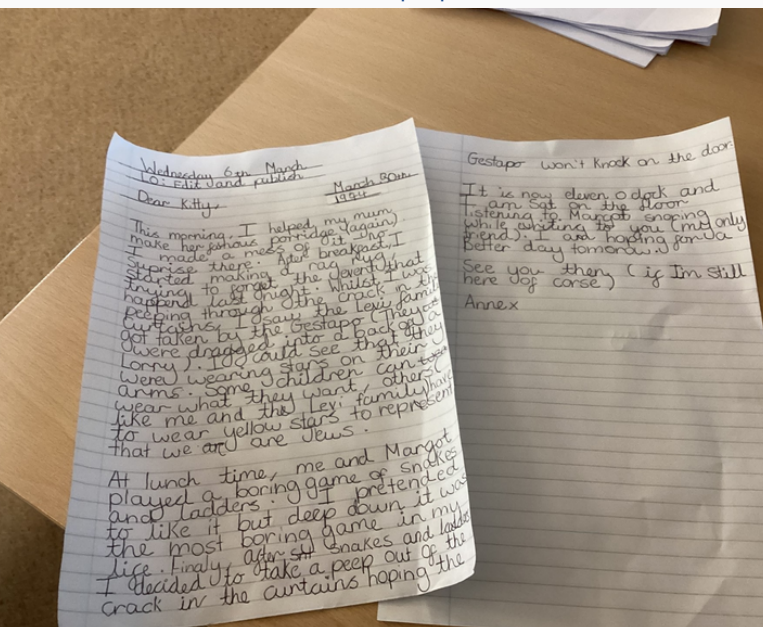 Wednesday 6th March
LO: Edit and publish
March 30th
1944
Dear Kitty,
This morning, I helped my mum
make her famous porridge (again)
I made a mess of it who
Suprise there. After breakfast, I
started making a rag rug
trying to forget the event that
happend last night. Whilst I was
peeping through the crack in the
Curtains, I saw the Levi family
got taken by the Gestapo (They
were dragged into a back of a
Lorry). I could see that they
were wearing stars on their
arms. Some children can
wear what they want, others (
like me and the Levi family) have
to wear yellow stars to represent
that we are Jews.
At lunch time, me and Margot
played a boring game of snakes
and ladders. I pretended
to like it but deep down it was
the most boring game in my
life. Finaly, after snakes and ladders
I decided to take a peep out of the
crack in the curtains hoping the
Gestapo won't knock on the door.
It is now eleven o clock and
I am sat on the floor
listening to Margot snoring
while writing to you (my only
friend). I am hoping for a
better day tomorow.
See you then (if Im still
here of corse)
Anne x